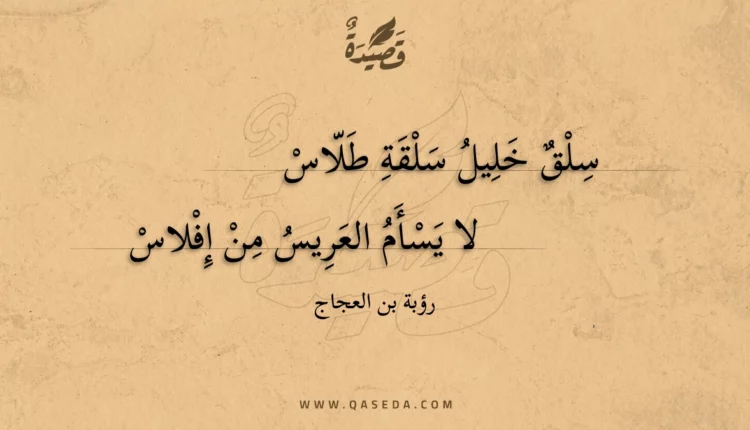 قَصِيْدَةٌ
سِلْقٌ خَلِيلُ سَلْقَةِ طَلّاسْ
لا يَسْأَمُ العَرِيسُ مِنْ إِفْلاسْ
رؤبة بن العجاج
WWW.QASEDA.COM